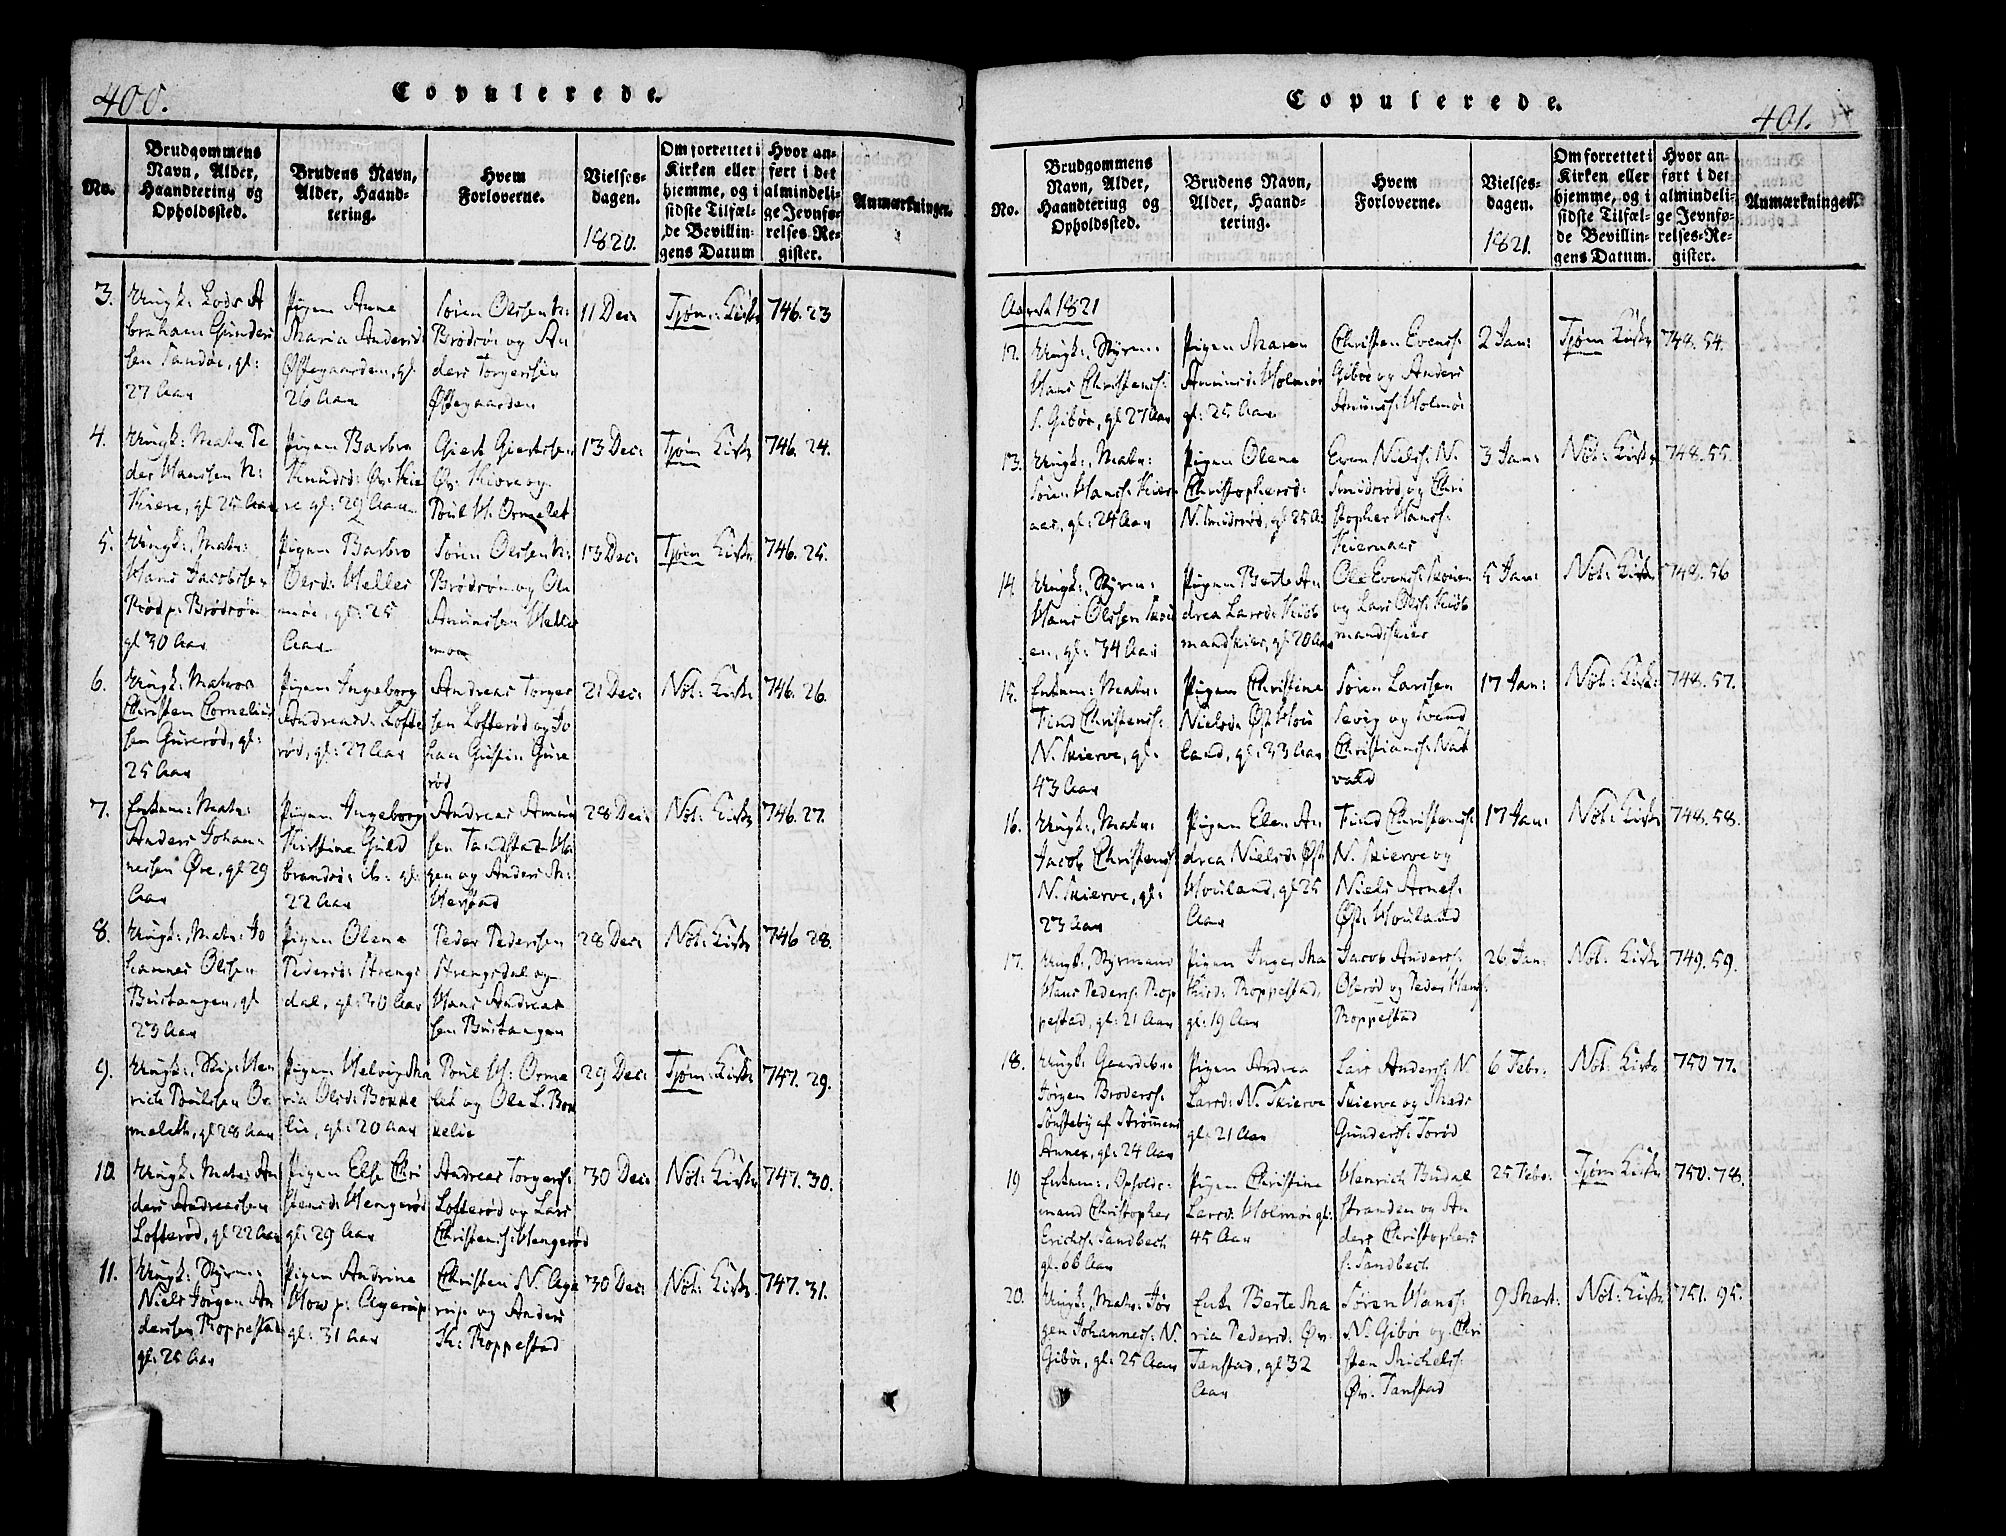 400.
Copulerede.
No.
Brudgommens Navn, Alder, Haandtering og Opholdssted.
Brudens Navn, Alder, Haandtering.
Hvem Forloverne.
Vielsesdagen. 1820.
Om forrettet i Kirken eller hjemme, og i sidste Tilfælde Bevillingens Datum
Hvor anført i det almindelige Jevnførelses-Register.
Anmærkninger.
3.
Ungk: Lods A
braham Gunder
sen Sandøe, gl:
27 Aar
Pigen Anne
Maria Andersd:
Østegaarden, gl.
26 Aar
Søren Olssen N:
Brødrøe og An
ders Torgerssen
Østegaarden
11 Dec:
Tjøm: Kirke
746. 23
4.
Ungk: Matr. Pe
der Hanssen N:
Kiere, gl 25 Aar
Pigen Barbro
Knudsd: Øv: Kie
re gl: 29 Aar
Giert Giertssen
Øv: Kiøre og
Poul H. Ormelet
13 Dec:
Tjøm Kirke
746. 24.
5.
Ungk: Matr:
Hans Jacobssen
Rød p: Brødrøe
gl 30 Aar
Pigen Barbro
Olsd: Helles
moe, gl: 25
Aar
Søren Olssen N:
Brødrøe og Ole
Amunssen Helles
moe
13 Dec:
Tjøm Kirke
746. 25.
6.
Ungk: Matros
Christen Cornelius
sen Gurerød, gl:
25 Aar
Pigen Ingeborg
Andreasd: Lofte
rød, gl: 27 Aar
Andreas Torger
sen Lofterød og Jo
han Gustin Gure
rød
21 Dec:
Nöt: Kirke
746. 26.
7.
Enkem: Matr:
Anders Johan
nessen Øre, gl 29
Aar
Pigen Ingeborg
Kirstine Guld
brandsd: ib: gl:
22 Aar
Andreas Amun
sen Tandstad Ha
gen og Anders M:
Hersøad
28 Dec:
Nöt: Kirke
746. 27.
8.
Ungk: Matr: Jo
hannes Olssen
Bustangen, gl
23 Aar
Pigen Olene
Pedersd: Strengs
dal, gl: 30 Aar
Peder Pederssen
Strengsdal og
Hans Andreas
sen Bustangen
28 Dec:
Nöt: Kirke
746 28.
9.
Ungk: Skip: Hen
rich Poulssen Or
meleth, gl 28 Aar
Pigen Helvig Ma
ria Olsd: Bokke
lie, gl: 20 Aar
Poul H: Orme
let og Ole L. Bok
kelie
29 Dec:
Tjøm: Kirke
747. 29.
10.
Ungk: Matr: An
ders Andreassen
Lofterød, gl 22 Aar
Pigen Else Chri
stensd: Hengerød
gl: 29 Aar
Andreas Torgerss:
Lofterød og Lars
Christenss: Hengerød
30 Dec:
Nöt: Kirke
747. 30.
11.
Ungk: Styrm:
Niels Jørgen An
derssen Roppestad
gl: 25 Aar
Pigen Andrine
How p: Agerup
gl: 31 Aar
Christen N. Age
rup og Anders
Roppestad
30 Dec:
Nöt: Kirke
747. 31.
Copulerede.
401.
No.
Brudgommens Navn, Alder, Haandtering og Opholdssted.
Brudens Navn, Alder, Haandtering.
Hvem Forloverne.
Vielsesdagen. 1821.
Om forrettet i Kirken eller hjemme, og i sidste Tilfælde Bevillingens Datum.
Hvor anført i det almindelige Jevnførelses-Register.
Anmærkninger.
Aaret 1821
12.
Ungk: Styrm:
Hans Christenss:
S. Gibøe, gl 27 Aar
Pigen Maren
Amunsd: Holmøe
gl: 25 Aar
Christen Evenss:
Gibøe og Anders
Amunss: Holmøe
2 Jan:
Tjøm Kirke
748. 54.
13.
Ungk: Matr:
Søren Hanss: Kier
aas, gl: 24 Aar
Pigen Olene
Christophersd:
N. Smidsrød, gl 25 A:
Even Nielss: N.
Smidsrød, og Chri
stopher Hanss:
Kiernaas
3 Jan:
Nöt: Kirke
748. 55.
14.
Ungk: Styrm:
Hans Olssen Skou
en, gl: 34 Aar
Pigen Berte An
drea Larsd: Kiøb
mandskier, gl: 20 Aar
Ole Evenss: Skouen
og Lars Olss: Kiøb
mandskier
5 Jan:
Nöt: Kirke
748. 56
15.
Enkem: Matr:
Find Christenss:
N. Skierve, gl:
43 Aar
Pigen Christine
Nielsd: Øst Hou
land, gl: 33 Aar
Søren Larssen
Sevig og Svend
Christianss: Nat
vald
17 Jan:
Nöt: Kirke
748. 57.
16.
Ungk: Matr:
Jacob Christenss:
N. Skierve, gl:
23 Aar
Pigen Elen An
drea Nielsd: Øst
Houland, gl 25
Aar
Find Christenss:
N. Skierve og
Niels Arnes:
Øst: Houland
17 Jan:
Nöt: Kirke
748. 58.
17.
Ungk: Styrmand
Hans Pederss: Rop
pestad, gl: 21 Aar
Pigen Inger Ma
thisd: Roppestad,
gl: 19 Aar
Jacob Anderss:
Olserød og Peder Hans:
Roppestad
26 Jan:
Nöt: Kirke
749. 59.
18.
Ungk: Gaardbr:
Jørgen Broderss:
Sønsteby af Strømmens
Annex, gl: 24 Aar
Pigen Andrea
Larsd: N. Skierve
gl: 21 Aar
Lars Anderss: N.
Skierve og Mads
Gunderss: Torød
6 Febr:
Nöt: Kirke
750 77.
19
Enkem: Opholds-
mand Christopher
Erichss: Sandbech
gl: 66 Aar
Pigen Christine
Larsd: Holmøe gl:
45 Aar
Henrich Budal
stranden og An
ders Christophers
s: Sandbech
25 Febr:
Tjøm Kirke
750. 78.
20.
Ungk: Matr: Jør
gen Johanness: N.
Gibøe, gl: 25 Aar
Enke Berte Ma
ria Pedersd: Øv:
Tanstad, gl 32
Aar
Søren Hanss:
N. Gibøe og Chri
sten Michelss:
Øv. Tanstad
9 Mart:
Nöt: Kirke
751. 95.